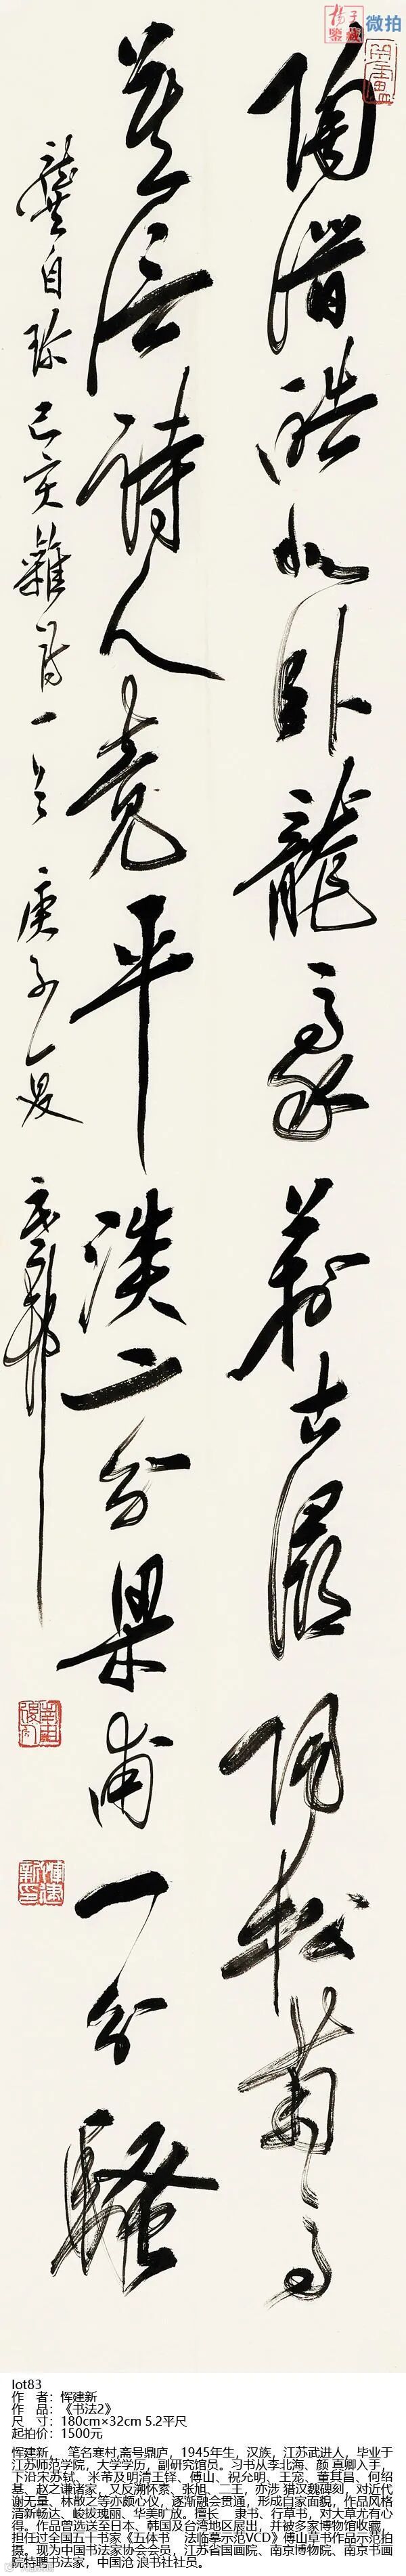 陶潛酷似卧龍豪萬古潯陽松菊高
莫信詩人竟平淡二分梁甫一分騷
龔自珍己亥雜詩一首 庚子夏
微拍
lot83
作 者：恽建新
作 品：《书法2》
尺 寸：180cm×32cm 5.2平尺
起拍价：1500元
恽建新， 笔名寒村,斋号鼎庐，1945年生，汉族，江苏武进人，毕业于
江苏师范学院，大学学历，副研究馆员。习书从李北海、颜 真卿入手，
下沿宋苏轼、米芾及明清王铎、 傅山、祝允明、王宠、董其昌、何绍
基、赵之谦诸家，又反溯怀素、张旭、二王，亦涉 猎汉魏碑刻，对近代
谢无量、林散之等亦颇心仪， 逐渐融会贯通，形成自家面貌，作品风格
清新畅达、峻拔瑰丽、华美旷放。擅长 隶书、行草书，对大草尤有心
得。作品曾选送至日本、韩国及台湾地区展出，并被多家博物馆收藏，
担任过全国五十书家《五体书 法临摹示范VCD》傅山草书作品示范拍
摄。现为中国书法家协会会员，江苏省国画院、南京博物院、南京书画
院特聘书法家，中国沧 浪书社社员。